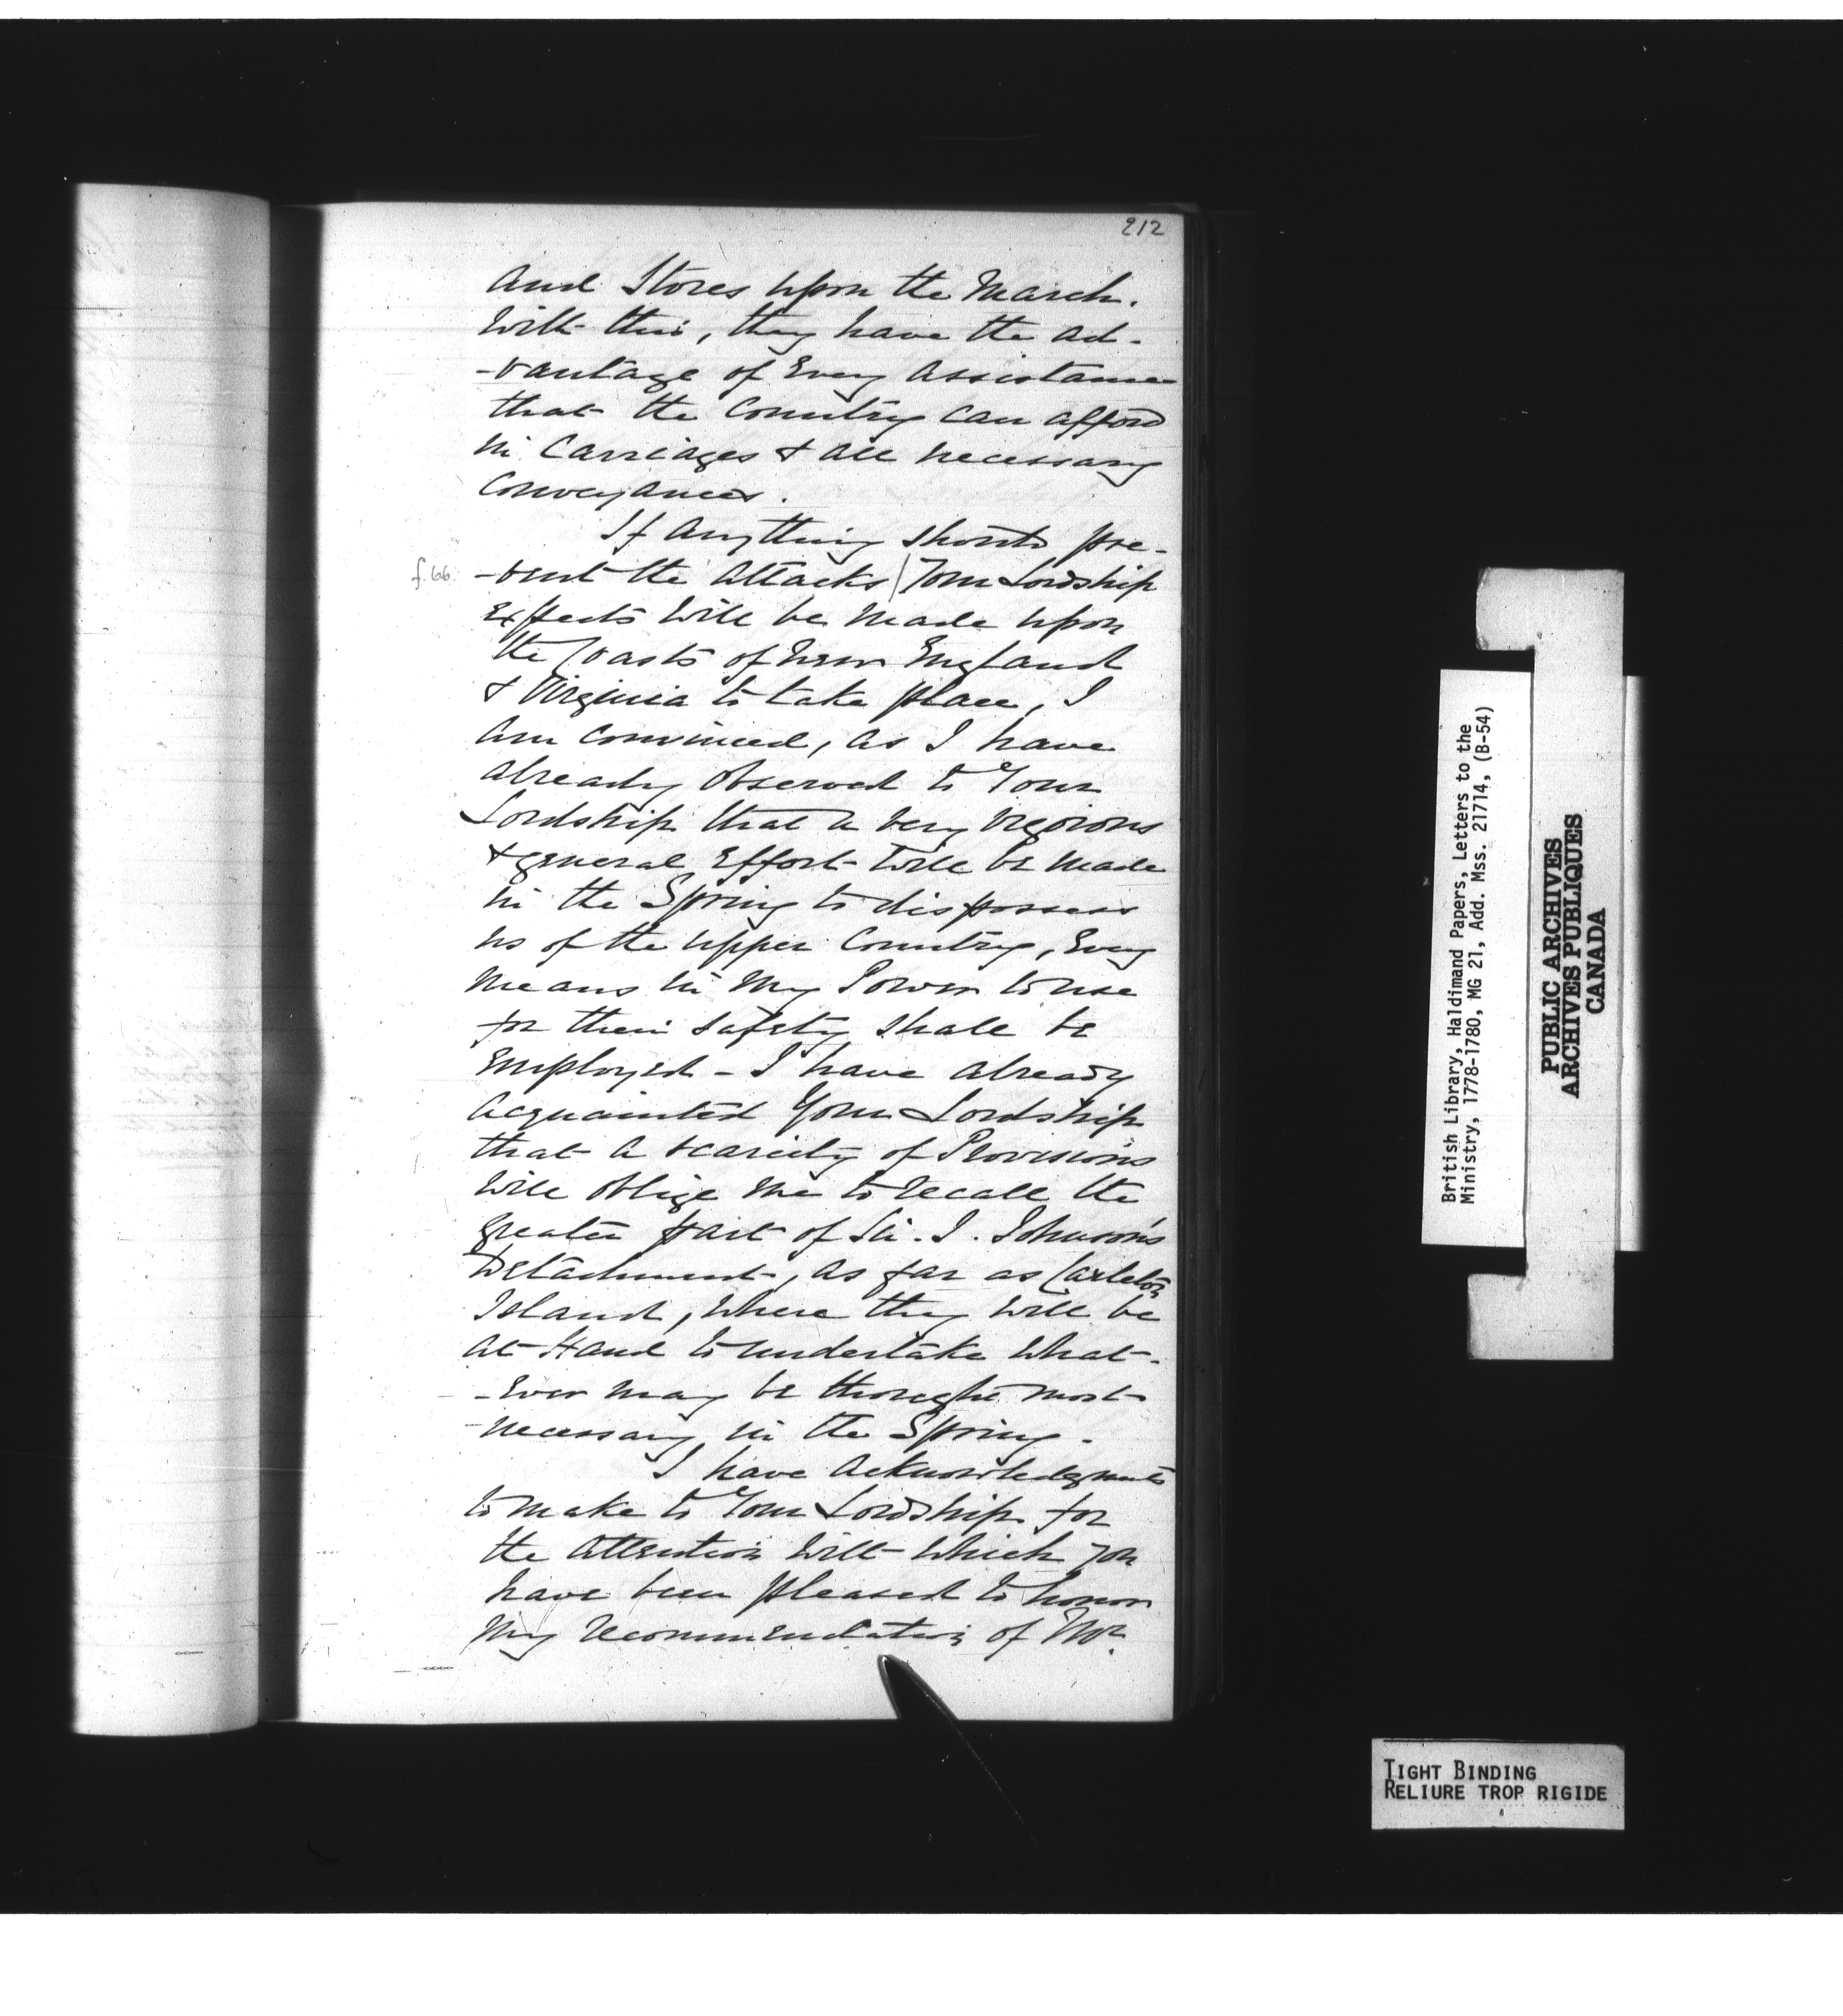 212
and Stores upon the March.
With this, they have the ad-
-vantage of Every Assistance
that the Country can afford
in Carriages & all necessary
Conveyances.
If anything should pre-
f. 66. -vent the attacks / Your Lordship
Expects will be made upon
the Coasts of New England
& Virginia to take place, I
am convinced, as I have
already observed to Your
Lordship that a very vigorous
& general Effort will be made
in the Spring to dispossess
us of the upper Country, Every
means in my Power to use
for their safety shall be
Employed - I have already
acquainted Your Lordship
that a scarcity of Provisions
will oblige me to recall the
greater part of Sir. J. Johnson's
Detachment, as far as Carleton
Island, where they will be
at Hand to undertake what-
-ever may be thought most
necessary in the Spring.
I have acknowledgments
to make to Your Lordship for
the attention with which you
have been pleased to honor
my recommendation of Mr.
British Library, Haldimand Papers, Letters to the
Ministry, 1778-1780, MG 21, Add. Mss. 21714, (B-54)
PUBLIC ARCHIVES
ARCHIVES PUBLIQUES
CANADA
TIGHT BINDING
RELIURE TROP RIGIDE